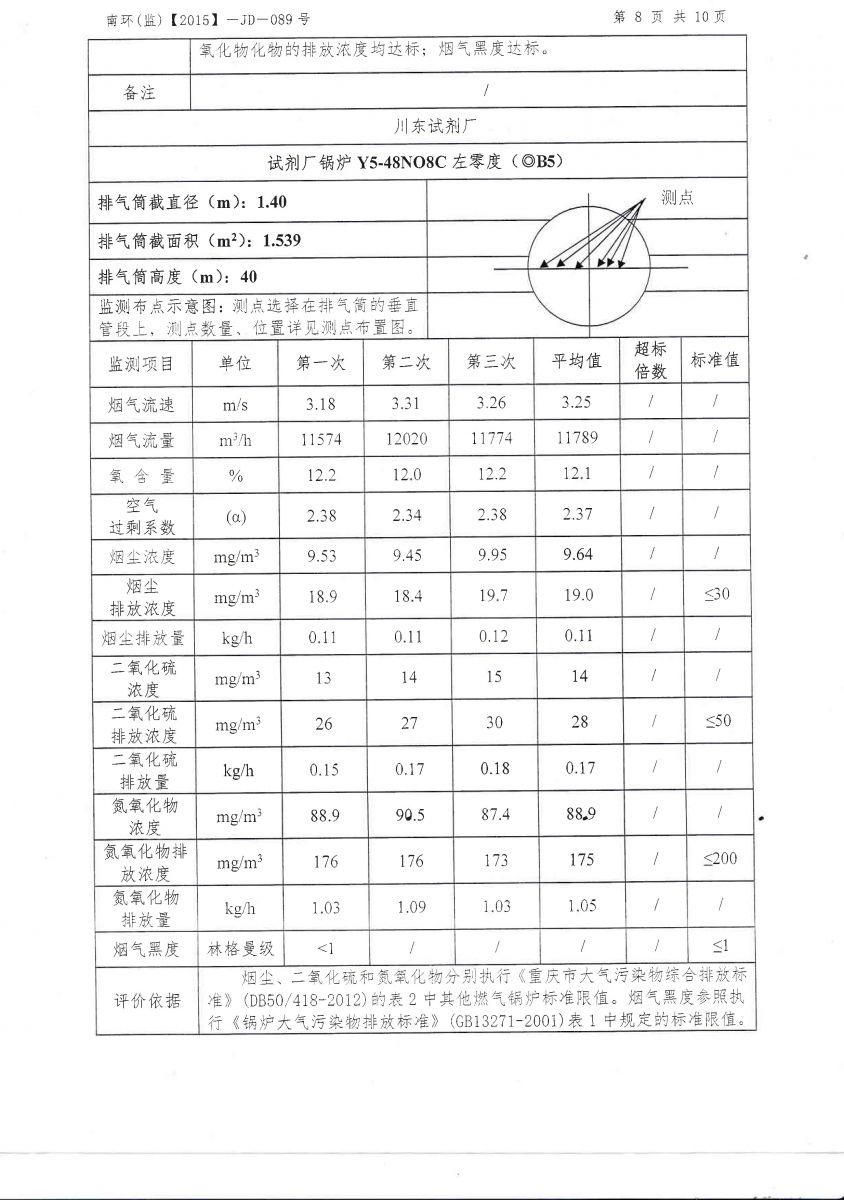 南环(监)【2015】－JD－089号 第 8 页 共 10 页
氧化物化物的排放浓度均达标；烟气黑度达标。
备注 /
川东试剂厂
试剂厂锅炉 Y5-48NO8C 左零度（◎B5）
排气筒截直径（m）：1.40
测点
排气筒截面积（m²）：1.539
排气筒高度（m）：40
监测布点示意图：测点选择在排气筒的垂直
管段上，测点数量、位置详见测点布置图。
监测项目 单位 第一次 第二次 第三次 平均值 超标倍数 标准值
烟气流速 m/s 3.18 3.31 3.26 3.25 / /
烟气流量 m³/h 11574 12020 11774 11789 / /
氧 含 量 % 12.2 12.0 12.2 12.1 / /
空气过剩系数 (α) 2.38 2.34 2.38 2.37 / /
烟尘浓度 mg/m³ 9.53 9.45 9.95 9.64 / /
烟尘排放浓度 mg/m³ 18.9 18.4 19.7 19.0 / ≤30
烟尘排放量 kg/h 0.11 0.11 0.12 0.11 / /
二氧化硫浓度 mg/m³ 13 14 15 14 / /
二氧化硫排放浓度 mg/m³ 26 27 30 28 / ≤50
二氧化硫排放量 kg/h 0.15 0.17 0.18 0.17 / /
氮氧化物浓度 mg/m³ 88.9 90.5 87.4 88.9 / /
氮氧化物排放浓度 mg/m³ 176 176 173 175 / ≤200
氮氧化物排放量 kg/h 1.03 1.09 1.03 1.05 / /
烟气黑度 林格曼级 <1 / / / / ≤1
评价依据
烟尘、二氧化硫和氮氧化物分别执行《重庆市大气污染物综合排放标
准》(DB50/418-2012)的表 2 中其他燃气锅炉标准限值。烟气黑度参照执
行《锅炉大气污染物排放标准》(GB13271-2001)表 1 中规定的标准限值。